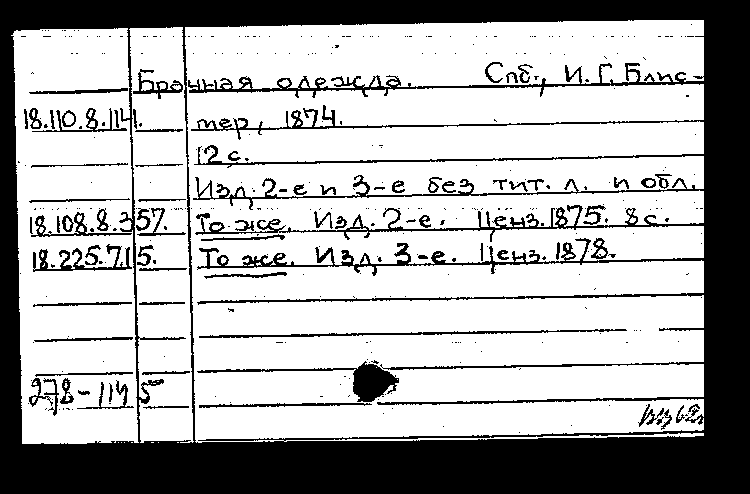 Брачная одежда. Спб., И. Г. Блис-
18.110.8.114. тер, 1874.
12 с.
Изд. 2-е и 3-е без тит. л. и обл.
18.108.8.357. То же. Изд. 2-е. Ценз. 1875. 8 с.
18.225.7.15. То же. Изд. 3-е. Ценз. 1878.
278-114 5